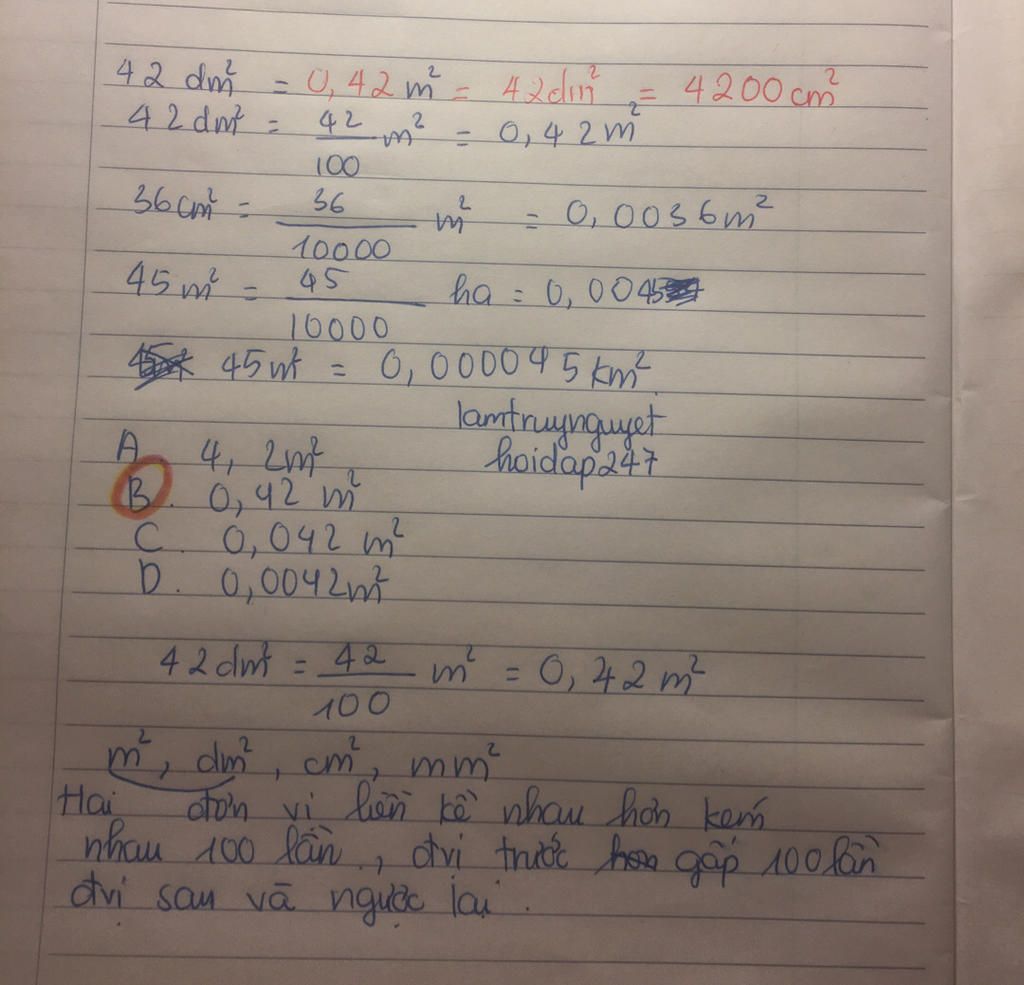 42 dm² = 0,42 m² = 42dm² = 4200 cm²
42 dm² = 42/100 m² = 0,42 m²
36cm² = 36/10000 m² = 0,0036m²
45 m² = 45/10000 ha = 0,0045
45m² = 0,000045 km²
lamtruynguyet
hoidap247
A. 4, 2m²
B. 0,42 m²
C. 0,042 m²
D. 0,0042m²
42 dm² = 42/100 m² = 0,42 m²
m², dm², cm², mm²
Hai đơn vị liền kề nhau hơn kém
nhau 100 lần, đvị trước gấp 100 lần
đvị sau và ngược lại.